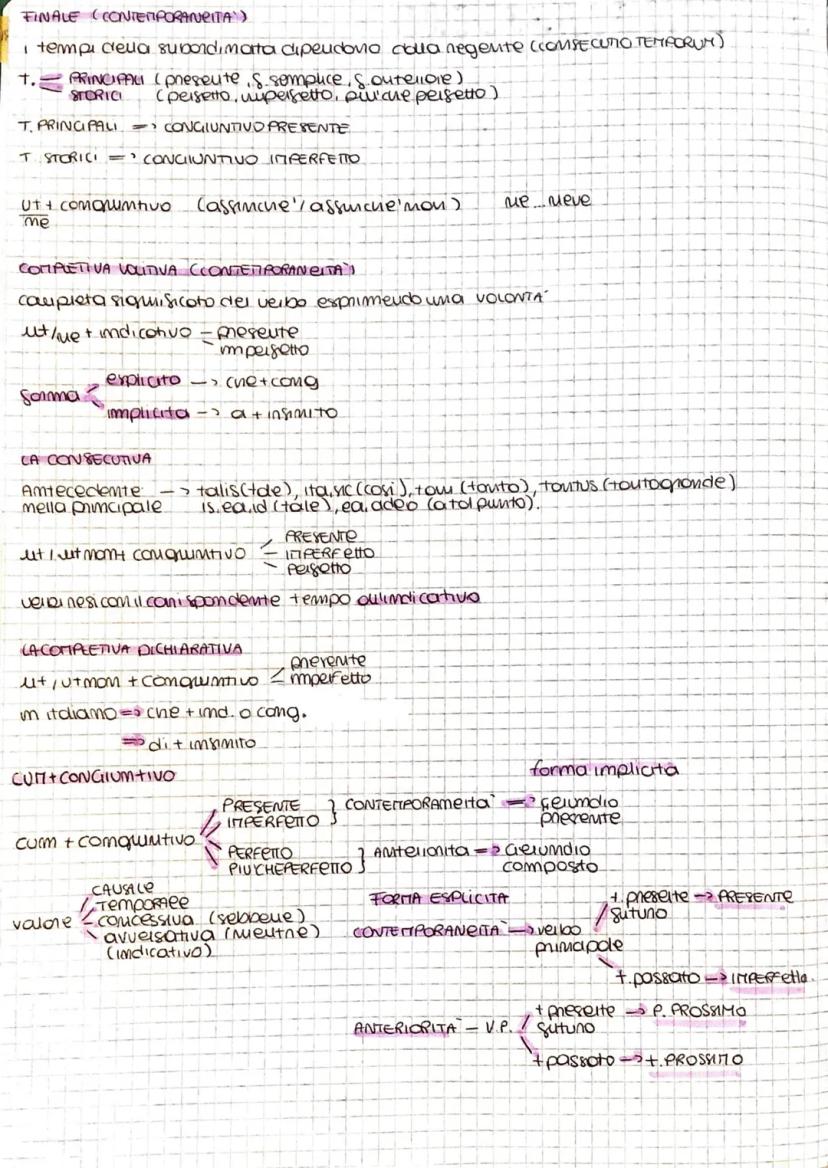 FINALE (CONTEMPORANEITA')
i tempi della subordinata dipendono dalla regente (CONSECUTIO TEMPORUM)
T. PRINCIPALI (presente, f. semplice, f. anteriore)
STORICI (perfetto, imperfetto, piuche perfetto)
T. PRINCIPALI => CONGIUNTIVO PRESENTE
T. STORICI => CONGIUNTIVO IMPERFETTO
ut + congiuntivo (affinche'/affinche' non) ne...neve
ne
COMPLETIVA VOLITIVA (CONTEMPORANEITA')
completa significato del verbo esprimendo una VOLONTA'
ut/ne + indicativo - presente
- imperfetto
forma < esplicito -> che+cong
implicita -> a + infinito
LA CONSECUTIVA
Antecedente -> talis (tale), ita, sic (cosi), tam (tanto), tantus (tanto grande)
nella principale is, ea, id (tale), ea, adeo (a tal punto).
PRESENTE
ut / ut non + congiuntivo - IMPERFETTO
perfetto
verbi resi con il corrispondente tempo dell'indicativo
LA COMPLETIVA DICHIARATIVA
ut / ut non + congiuntivo < presente
imperfetto
in italiano => che + ind. o cong.
=> di + infinito
CUM + CONGIUNTIVO forma implicita
PRESENTE } CONTEMPORANEITA' => gerundio
IMPERFETTO presente
cum + congiuntivo
PERFETTO } Anteriorita => Gerundio
PIUCHEPERFETTO composto
CAUSALE
TEMPORALE FORMA ESPLICITA t. presente -> PRESENTE
valore concessiva (sebbene) futuro
avversativa (mentre) CONTEMPORANEITA' -> verbo
(indicativo) principale
t. passato -> IMPERFETTO
t presente -> P. PROSSIMO
ANTERIORITA' - V.P. futuro
t passato -> t. PROSSIMO